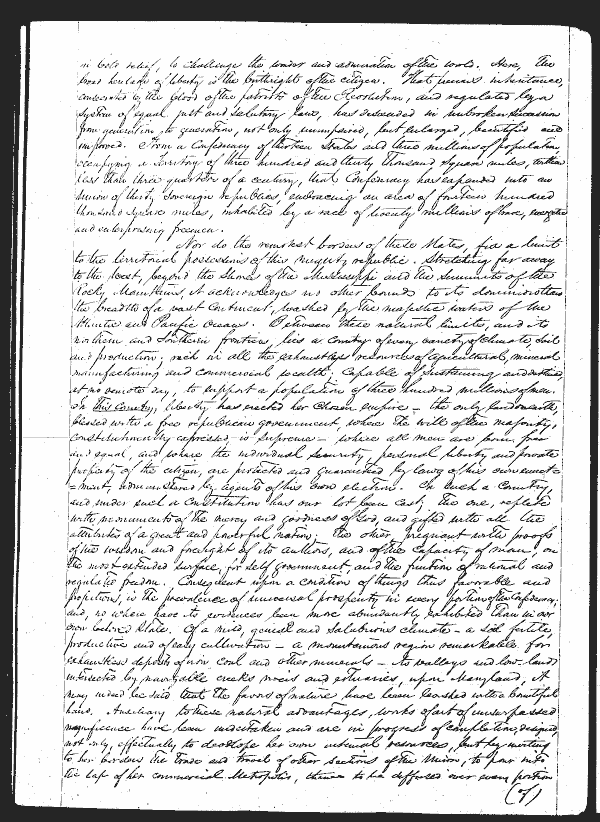 in bold relief, to challenge the wonder and admiration of the world. Here, the
broad heritage of liberty is the birthright of the citizen. That inheritance,
consecrated by the blood of the patriots of the Revolution, and regulated by a
system of equal just and salutary laws, has descended in unbroken succession
from generation to generation, not only unimpaired, but enlarged, beautified and
improved. From a Confederacy of thirteen States and three millions of population
occupying a Territory of three hundred and thirty thousand square miles, within
less than three quarters of a century, that Confederacy has expanded into an
Union of thirty Sovereign republics, embracing an area of fourteen hundred
thousand square miles, inhabited by a race of twenty millions of brave, energetic
and enterprising freemen.
Nor do the remotest borders of these States, fix a limit
to the territorial possessions of this mighty republic. Stretching far away
to the West, beyond the Shores of the Mississippi and the Summits of the
Rocky Mountains, it acknowledges no other bounds to its dominion than
the breadth of a vast Continent, washed by the majestic waters of the
Atlantic and Pacific Oceans. Between these natural limits, and its
northern and Southern frontier, lies a Country of every variety of climate, soil
and production; rich in all the exhaustless resources of agricultural, mineral
manufacturing and commercial wealth: Capable of sustaining and destined
at no remote day, to support a population of three hundred millions of men.
In this Country, liberty has erected her Chosen empire - the only land on earth,
blessed with a free republican government, where the will of the majority,
constitutionally expressed, is Supreme - where all men are born free
and equal, and where the individual security, personal liberty and private
property of the citizen, are protected and guaranteed by laws of his own enact-
=ment, administered by agents of his own election. In such a Country,
and under such a Constitution has our lot been cast; the one, replete
with monuments of the mercy and goodness of God, and gifted with all the
attributes of a great and powerful nation; the other, pregnant with proofs
of the wisdom and foresight of its authors, and of the Capacity of man, on
the most extended surface, for self government, and the fruition of rational and
regulated freedom. Consequent upon a condition of things thus favorable and
propitious, is the prevalence of universal prosperity in every portion of the Confederacy
and, no where have its evidences been more abundantly exhibited than in our
own beloved State. Of a mild, genial and salubrious climate - a soil fertile,
productive and of easy cultivation - a mountainous region remarkable for
exhaustless deposits of iron coal and other minerals - its valleys and low-lands
intersected by navigable creeks rivers and estuaries, upon Maryland, it
may indeed be said that the favors of nature have been lavished with a bountiful
hand. Auxiliary to these natural advantages, works of art of unsurpassed
magnificence have been undertaken and are in progress of completion, designed
not only, effectually to develope her own internal resources, but by inviting
to her borders the trade and travel of other sections of the Union, to pour into
the lap of her commercial Metropolis, thence to be diffused over every portion
(of)